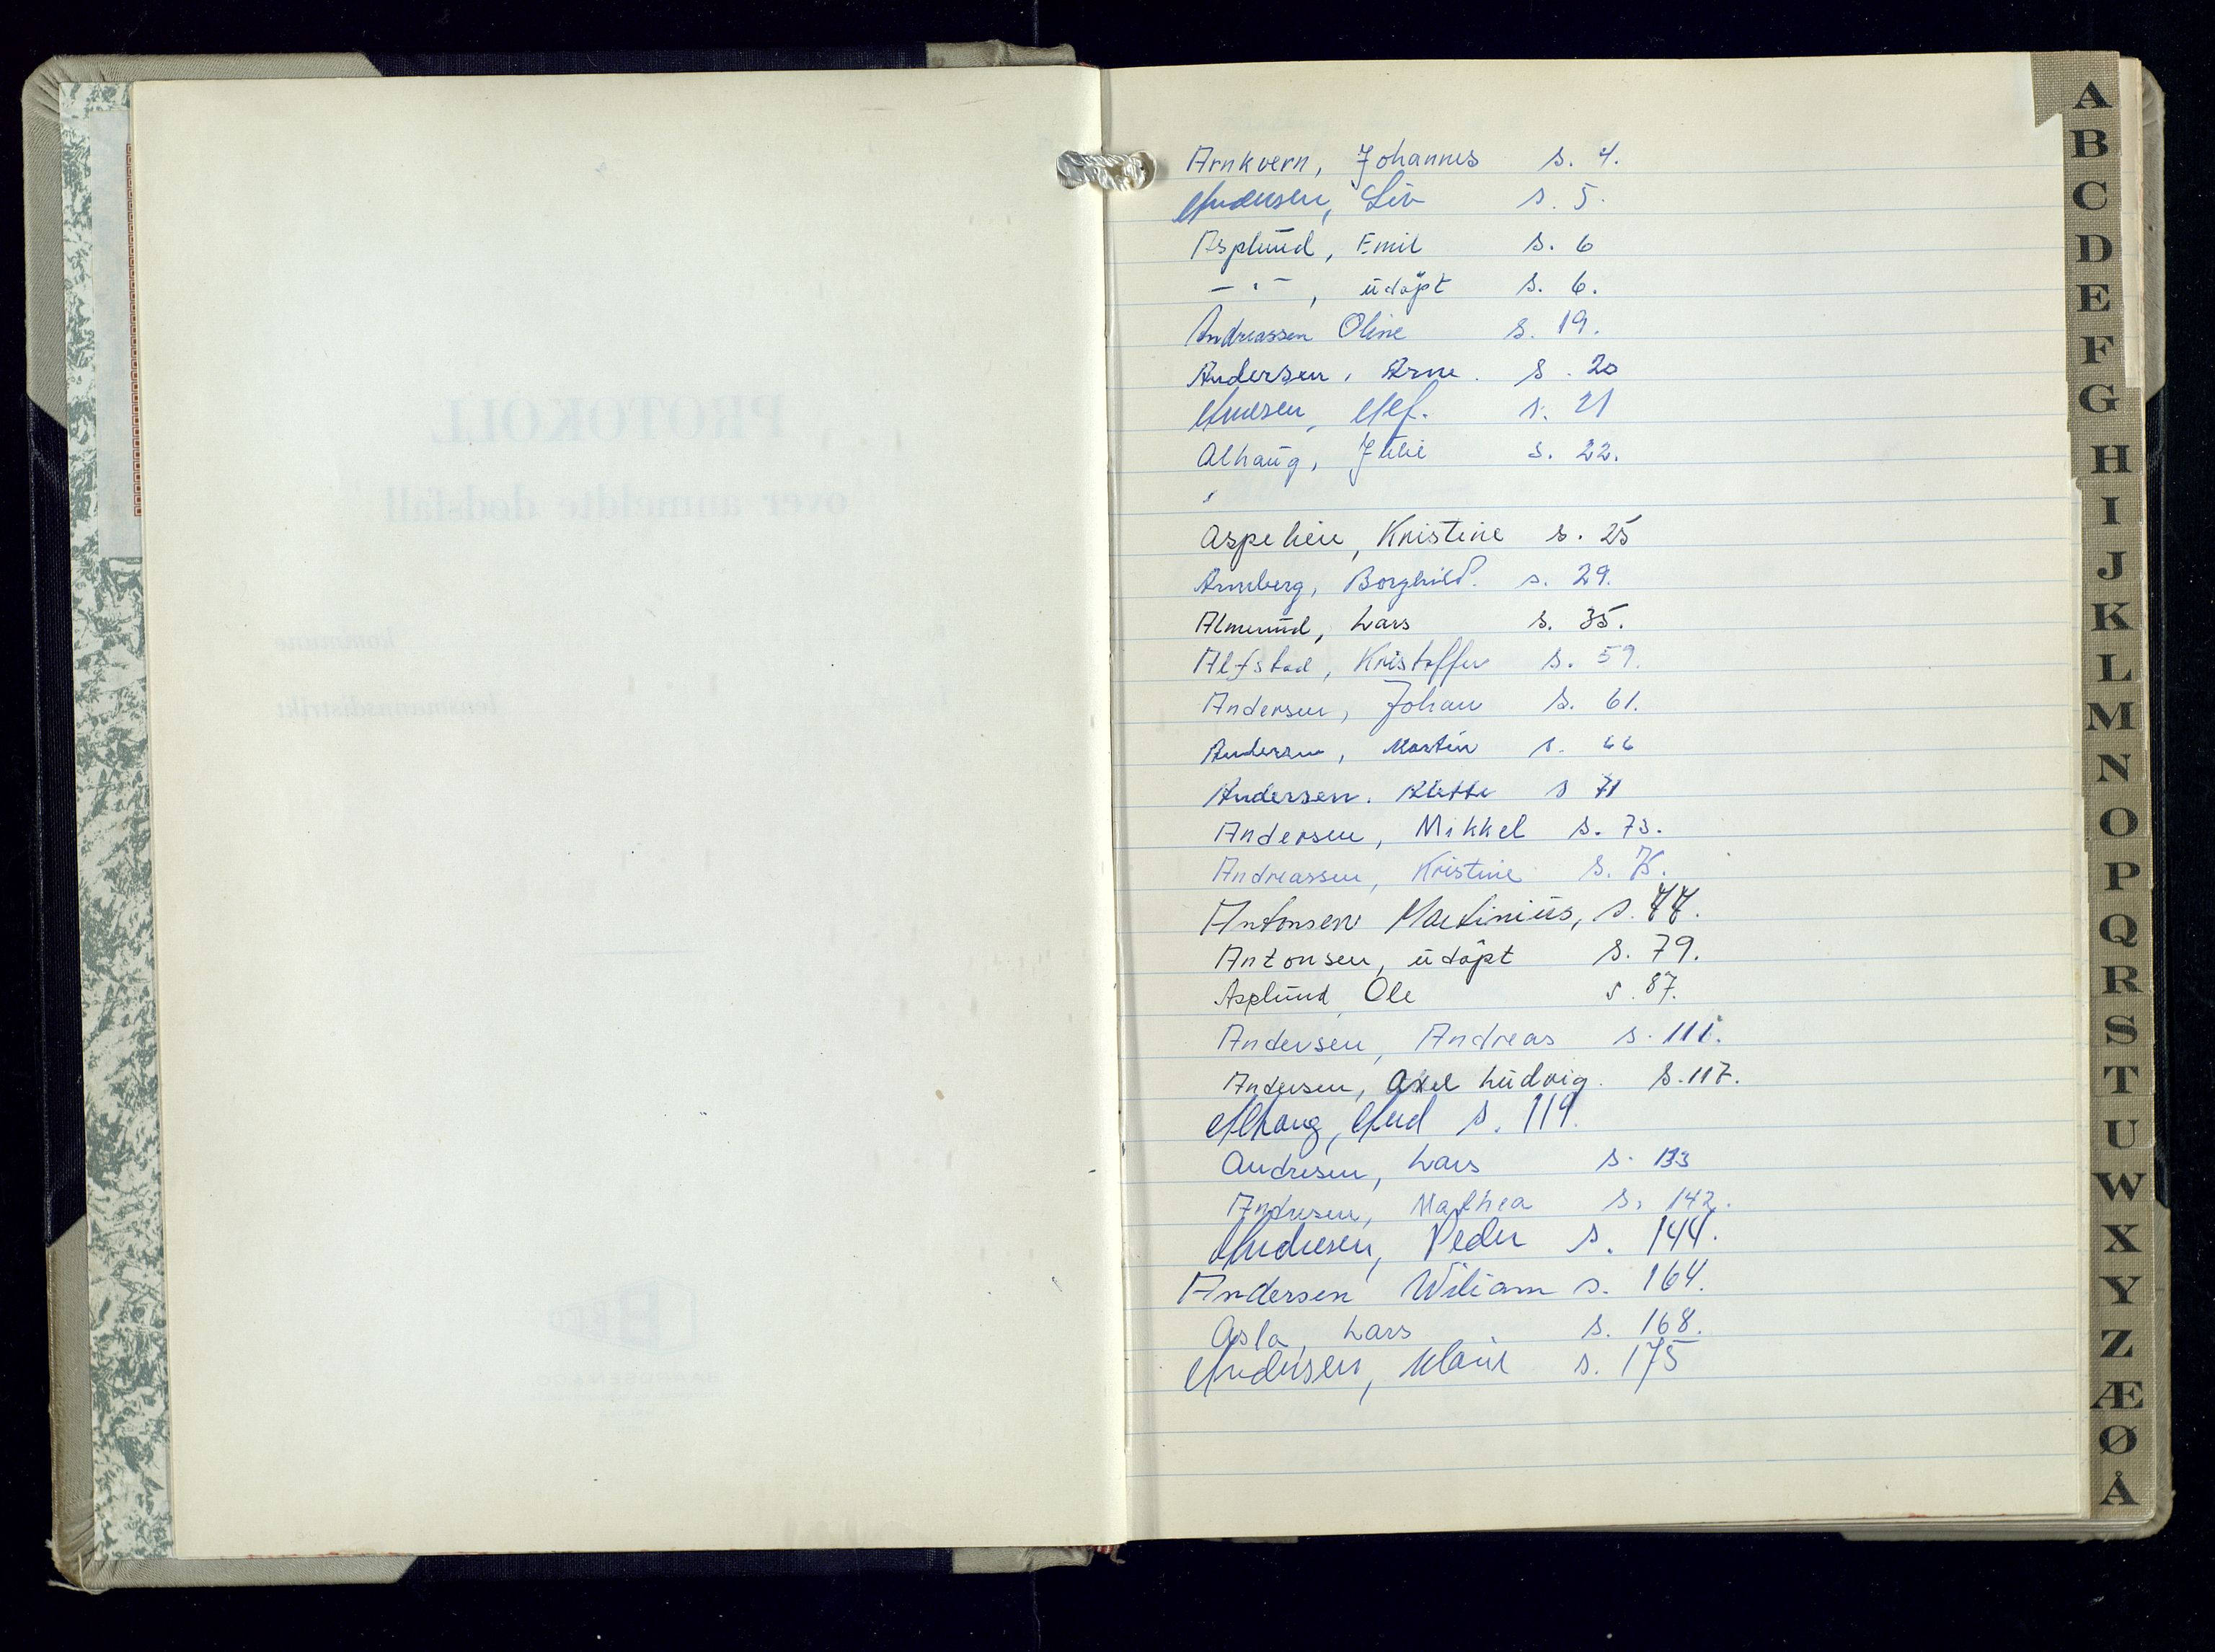 PROTOKOLL
over anmeldte dødsfall
kommune
lensmannsdistrikt
Arnkvern, Johannes s. 4.
Andersen, Liv s. 5.
Asplund, Emil s. 6
— " — , udøpt s. 6.
Andreassen Oline s. 19.
Andersen, Arne. s. 20
Alf. s. 21
Alhaug, Julie s. 22.
Aspelien, Kristine s. 25
Borghild. s. 29.
Almerud, Lars s. 35.
Alfstad, Kristoffer s. 59.
Andersen, Johan s. 61.
Andersen, Martin s. 66
Andersen. s 71
Andersen, Mikkel s. 73.
Andreassen, Kristine s. 75.
Antonsen Martinius, s. 77.
Antonsen, udøpt s. 79.
Asplund, Ole s. 87.
Andersen, Andreas s. 111.
Andersen, Axel Ludvig. s. 117.
Alhaug, s. 119.
Andresen, Lars s. 133
Andresen, Mathea s. 142.
Andresen, Peder s. 144.
Andersen Wiliam s. 164.
Asla, Lars s. 168.
Andersen, s. 175
A
B
C
D
E
F
G
H
I
J
K
L
M
N
O
P
Q
R
S
T
U
W
X
Y
Z
Æ
Ø
Å